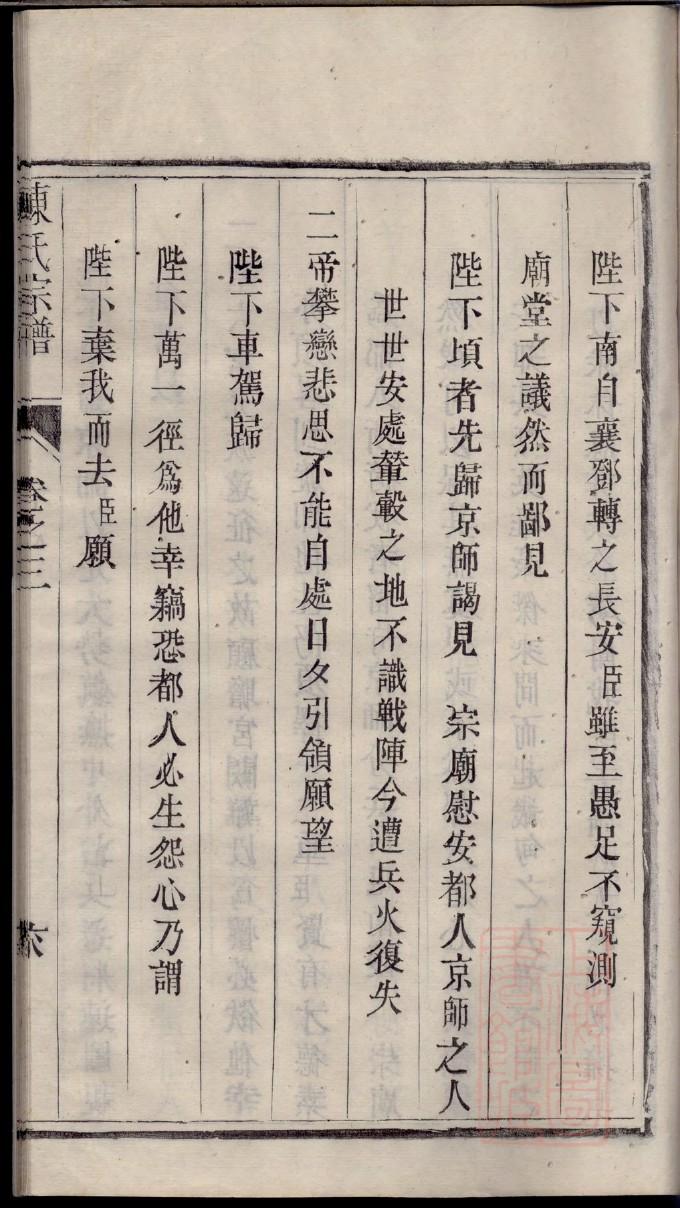 陛下南自襄鄧轉之長安臣雖至愚足不窺測
廟堂之議然而鄙見
陛下頃者先歸京師謁見 宗廟慰安都人京師之人
世世安處輦轂之地不識戦陣今遭兵火復失
二帝攀戀悲思不能自處日夕引領願望
陛下車駕歸
陛下萬一徑爲他幸竊恐都人必生怨心乃謂
陛下棄我而去臣願
陳氏宗譜 卷之三 六